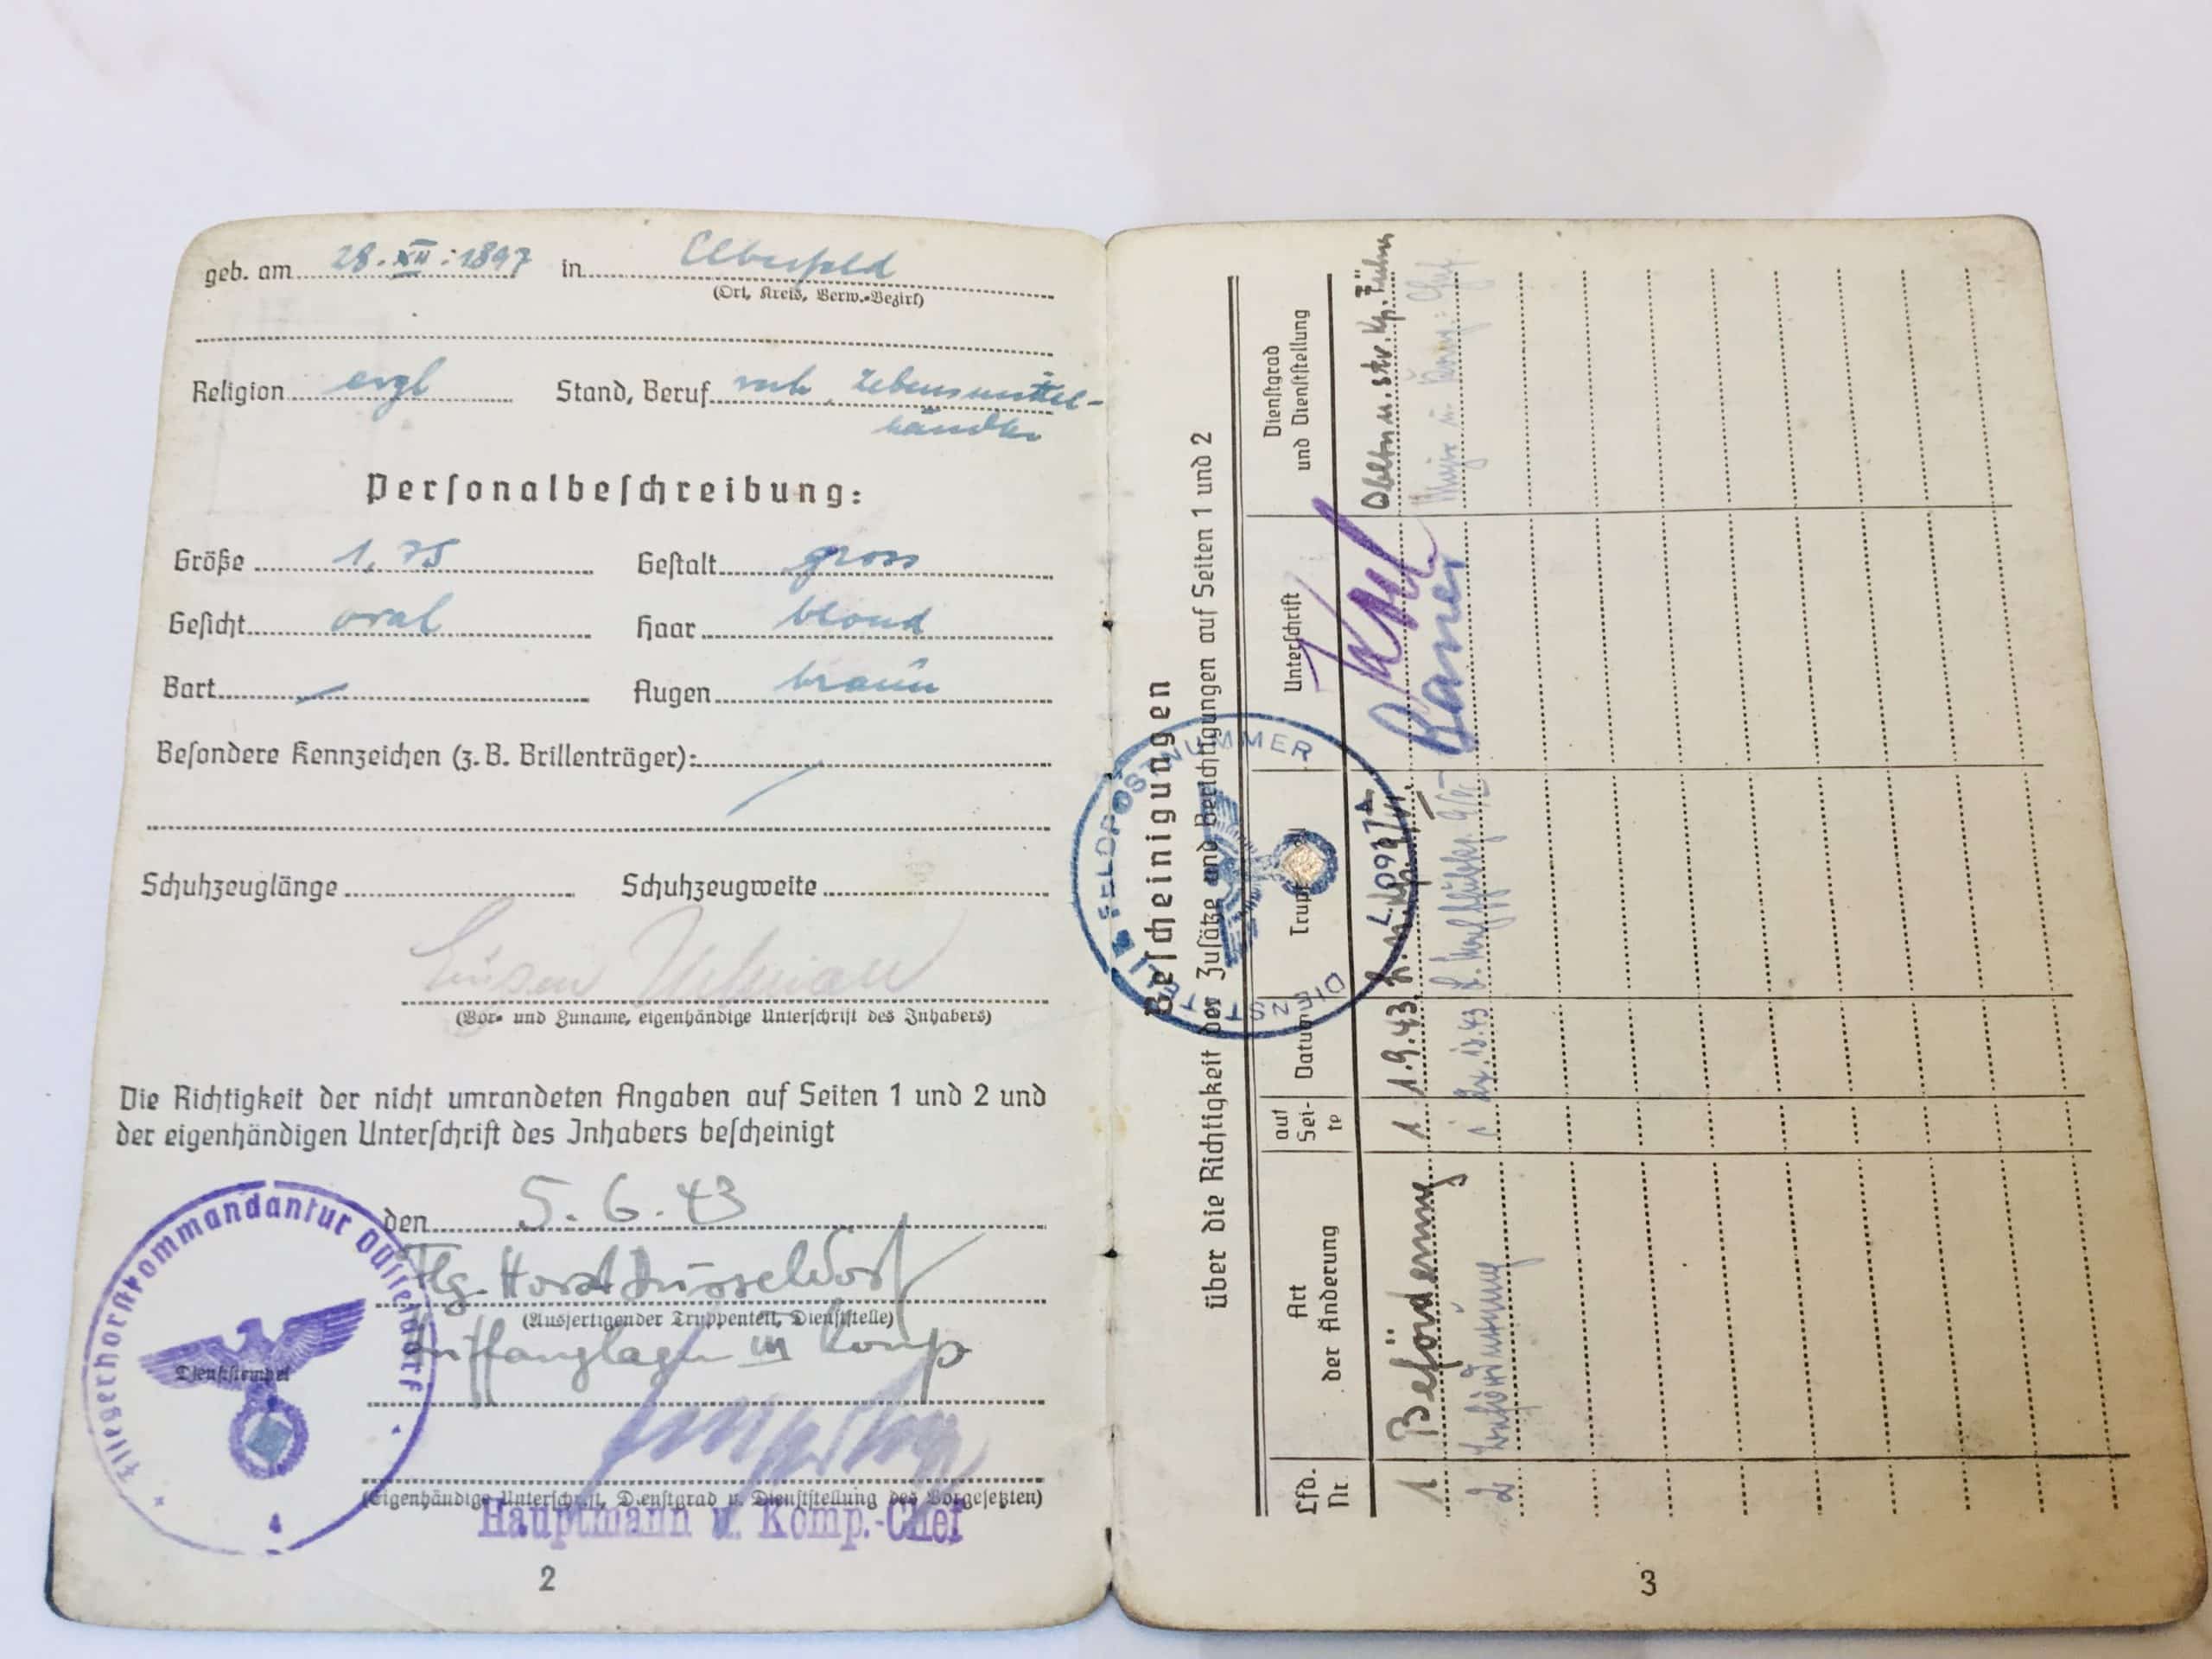 geb. am 28. XII. 1897 in Elberfeld
(Ort, Kreis, Verw.-Bezirk)
Religion evgl Stand, Beruf verh. Lebensmittel-
händler
Personalbeschreibung:
Größe 1,75 Gestalt gross
Gesicht oval Haar blond
Bart Augen braun
Besondere Kennzeichen (z. B. Brillenträger):
Schuhzeuglänge Schuhzeugweite
(Vor- und Zuname, eigenhändige Unterschrift des Inhabers)
Die Richtigkeit der nicht umrandeten Angaben auf Seiten 1 und 2 und
der eigenhändigen Unterschrift des Inhabers bescheinigt
den 5. 6. 43
Flg. Horst Düsseldorf
(Ausfertigender Truppenteil, Dienststelle)
Auffanglager III Komp
(Eigenhändige Unterschrift, Dienstgrad u. Dienststellung des Vorgesetzten)
Hauptmann u. Komp.-Chef
Fliegerhorstkommandantur Düsseldorf
Dienststempel
4
2
Bescheinigungen
über die Richtigkeit der Zusätze und Berichtigungen auf Seiten 1 und 2
Lfd. Nr. Art der Änderung auf Seite Datum Unterschrift Dienstgrad und Dienststellung
1 Beförderung 1 1.9.43
2 1
DIENSTSTELLE FELDPOSTNUMMER
3